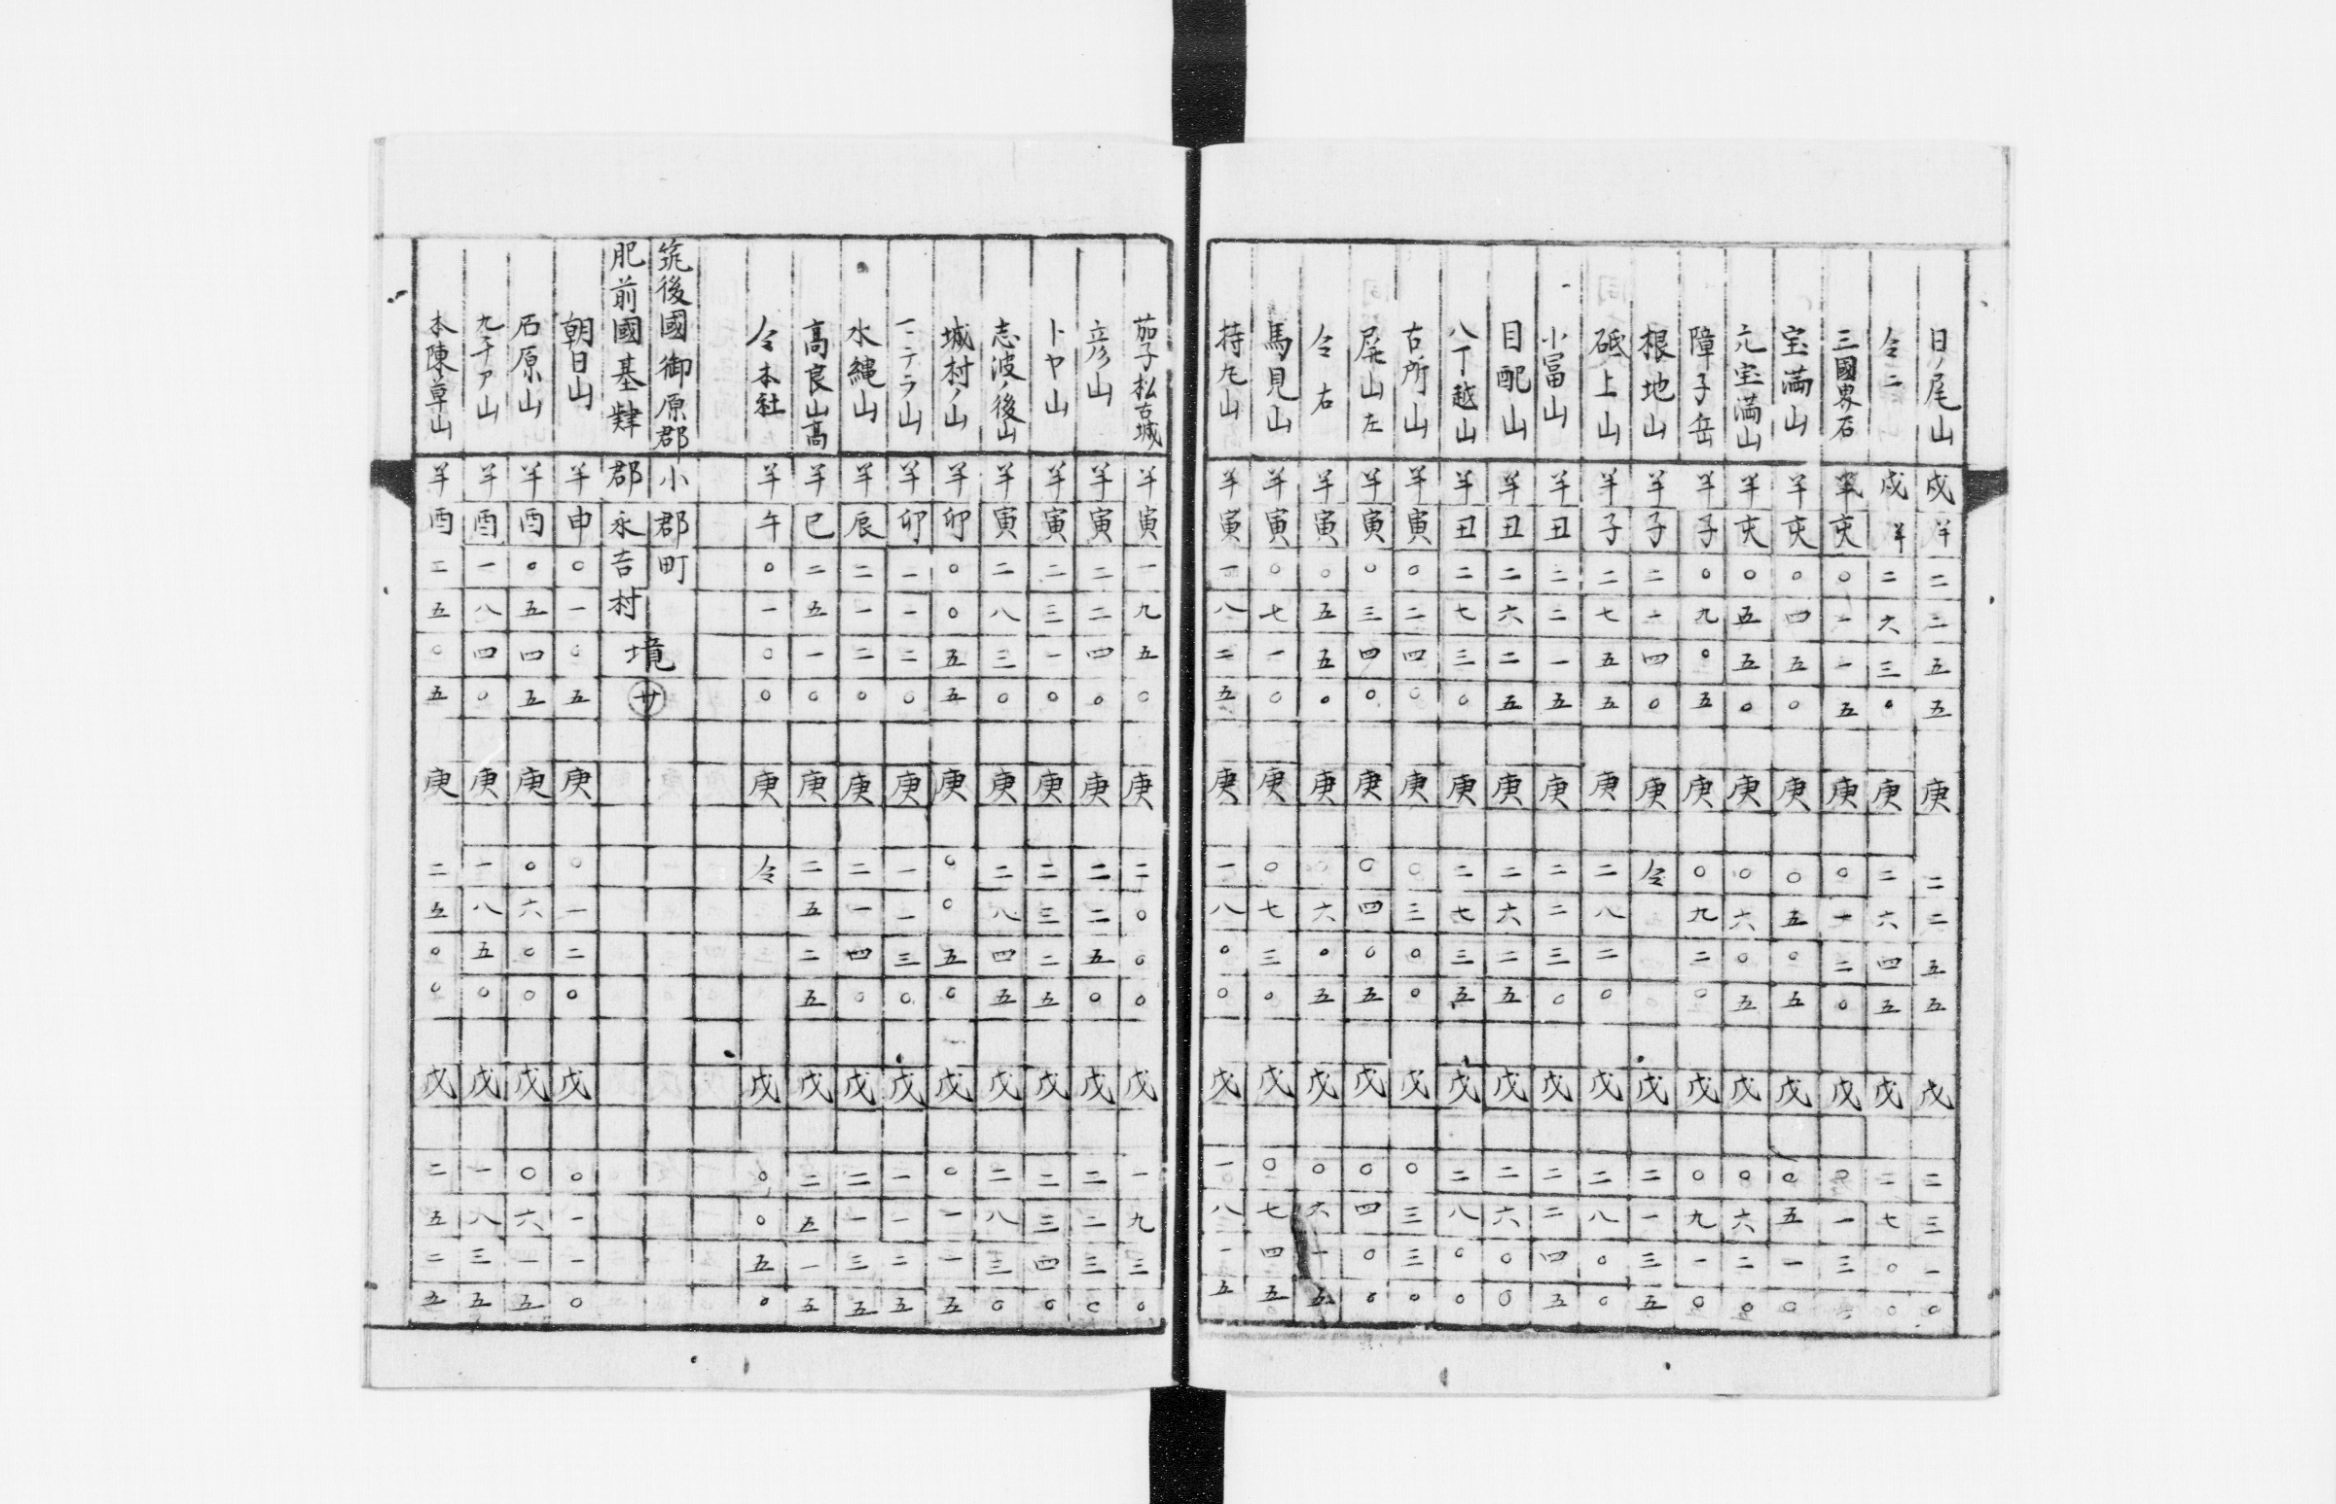 日ノ尾山 戌半 二二五五 庚 二二五五 戊 二三一〇
仝二 戌半 二六三〇 庚 二六四五 戊 二七〇〇
三國界石 半亥 〇一一五 庚 〇一二〇 戊 〇一三
宝満山 半亥 〇四五〇 庚 〇五〇五 戊 〇五一〇
元宝満山 半亥 〇五五〇 庚 〇六〇五 戊 〇六二〇
障子岳 半子 〇九〇五 庚 〇九二〇 戊 〇九一〇
根地山 半子 二一四〇 庚 仝 戊 二一三五
砥上山 半子 二七五五 庚 二八二〇 戊 二八〇〇
小冨山 半丑 二二一五 庚 二二三〇 戊 二二四五
目配山 半丑 二六二五 庚 二六二五 戊 二六〇〇
八丁越山 半丑 二七三〇 庚 二七三五 戊 二八〇〇
古所山 半寅 〇二四〇 庚 〇三〇〇 戊 〇三三〇
屏山左 半寅 〇三四〇 庚 〇四〇五 戊 〇四〇〇
仝右 半寅 〇五五〇 庚 〇六〇五 戊 〇六一五
馬見山 半寅 〇七一〇 庚 〇七三〇 戊 〇七四五
持丸山 半寅 一八二五 庚 一八〇〇 戊 一八一五
茄子松古城 半寅 一九五〇 庚 二〇〇〇 戊 一九三〇
立彦山 半寅 二二四〇 庚 二二五〇 戊 二二三〇
トヤ山 半寅 二三一〇 庚 二三二五 戊 二三四〇
志波ノ後山 半寅 二八三〇 庚 二八四五 戊 二八三〇
城村ノ山 半卯 〇〇五五 庚 〇〇五〇 戊 〇一一五
一ニテラ山 半卯 一一二〇 庚 一一三〇 戊 一一二五
水縄山 半辰 二一二〇 庚 二一四〇 戊 二一三五
高良山高 半巳 二五一〇 庚 二五二五 戊 二五一五
仝本社 半午 〇一〇〇 庚 仝 戊 〇〇五〇
筑後國御原郡小郡町
肥前國基肄郡永吉村
境 廿
朝日山 半申 〇一〇五 庚 〇一二〇 戊 〇一一〇
石原山 半酉 〇五四五 庚 〇六〇〇 戊 〇六一五
九千ア山 半酉 一八四〇 庚 一八五〇 戊 一八三五
本陳草山 半酉 二五〇五 庚 二五〇〇 戊 二五二五